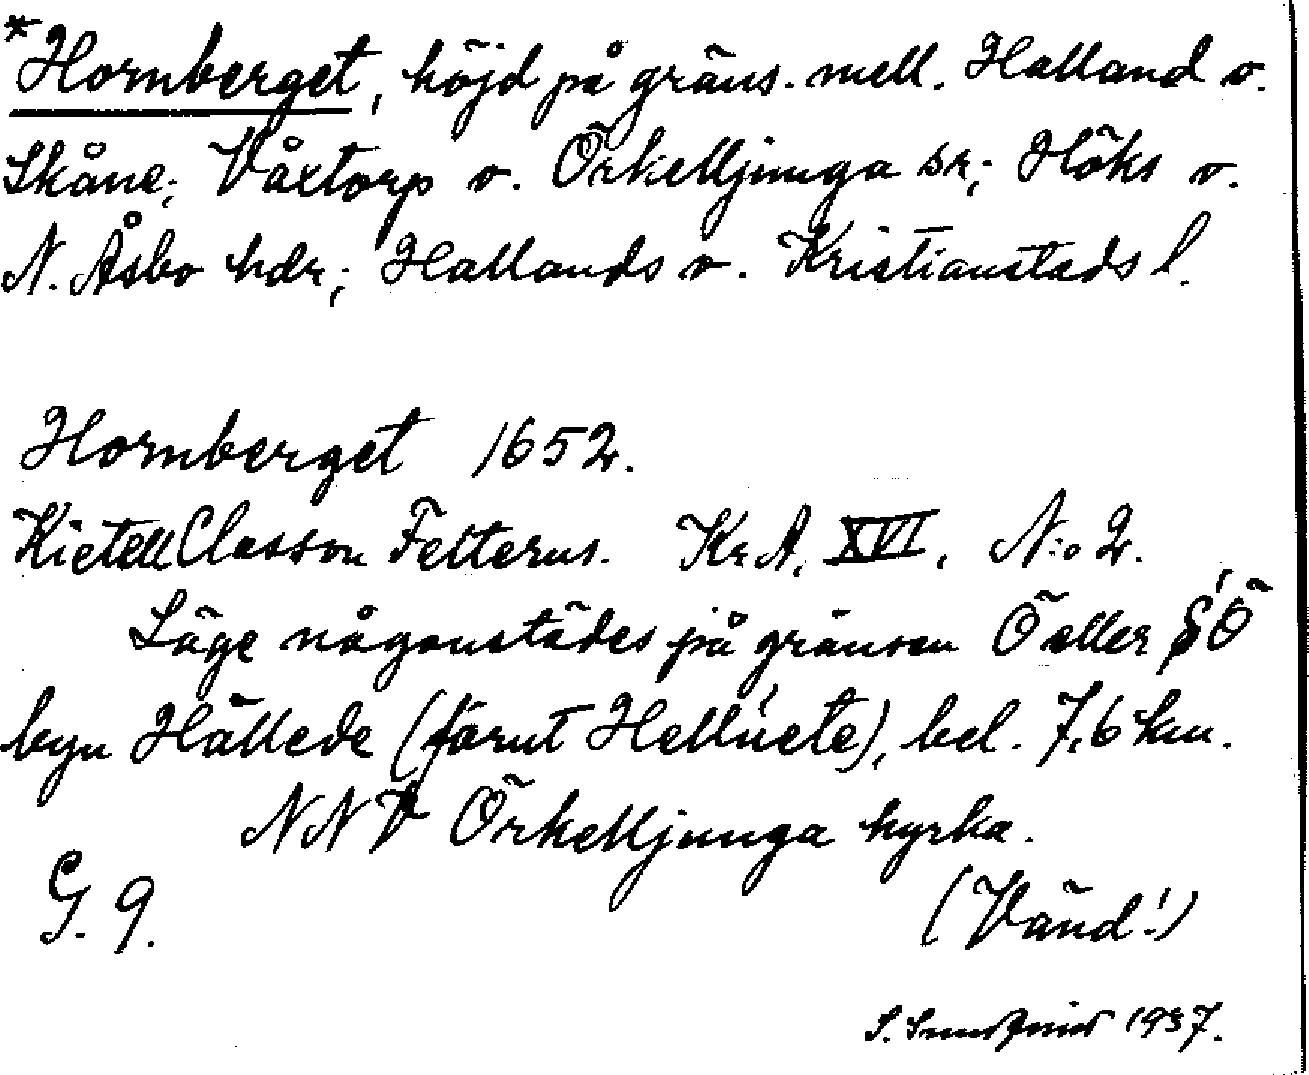 *Hornberget, höjd på gräns. mell. Halland o.
Skåne; Våxtorp o. Örkelljunga sn; Höks o.
N. Åsbo hdr; Hallands o. Kristianstads l.
Hornberget 1652.
Kietell Classon Felterus. Kr.A. XVI. N:o 2.
Läge någonstädes på gränsen Ö eller SÖ
byn Hällede (förut Hellúete), bel. 7,6 km.
NNV Örkelljunga kyrka.
G. 9.
(Vänd!)
S. 1937.